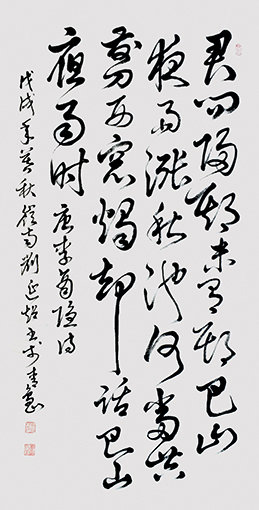 君问归期未有期巴山
夜雨涨秋池何当共
剪西窗烛却话巴山
夜雨时 唐李商隐诗
戊戌年暮秋岭南刘延书于